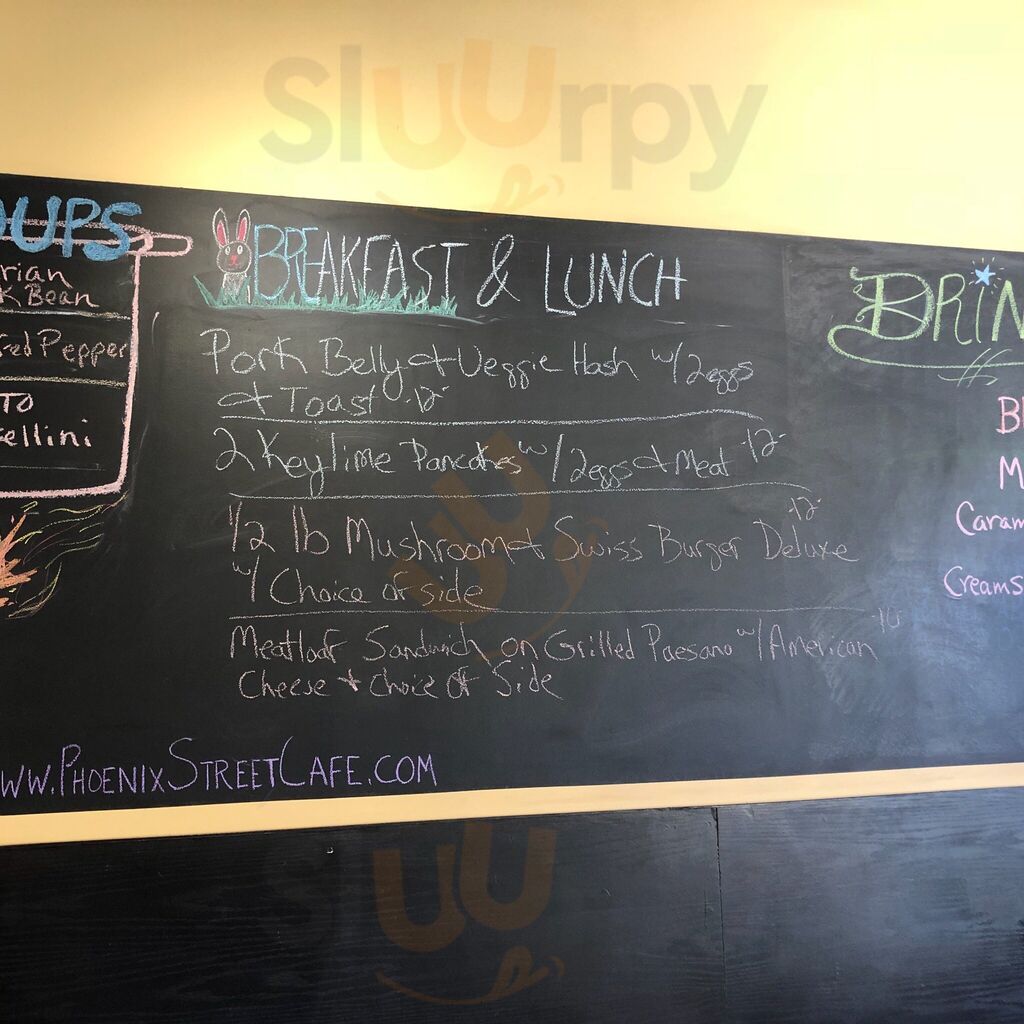 Sluurpy
OUPS
rian
k Bean
Red Pepper
TO
ellini
BREAKFAST & LUNCH
Pork Belly + Veggie Hash w/ 2 eggs
+ Toast 12-
2 Key lime Pancakes w/ 2 eggs + Meat 12-
1/2 lb Mushroom + Swiss Burger Deluxe 12-
w/ Choice of side
Meatloaf Sandwich on Grilled Paesano w/ American 10
Cheese + Choice of Side
DRIN
Bl
M
Caram
Creams
WW.PHOENIXSTREETCAFE.COM